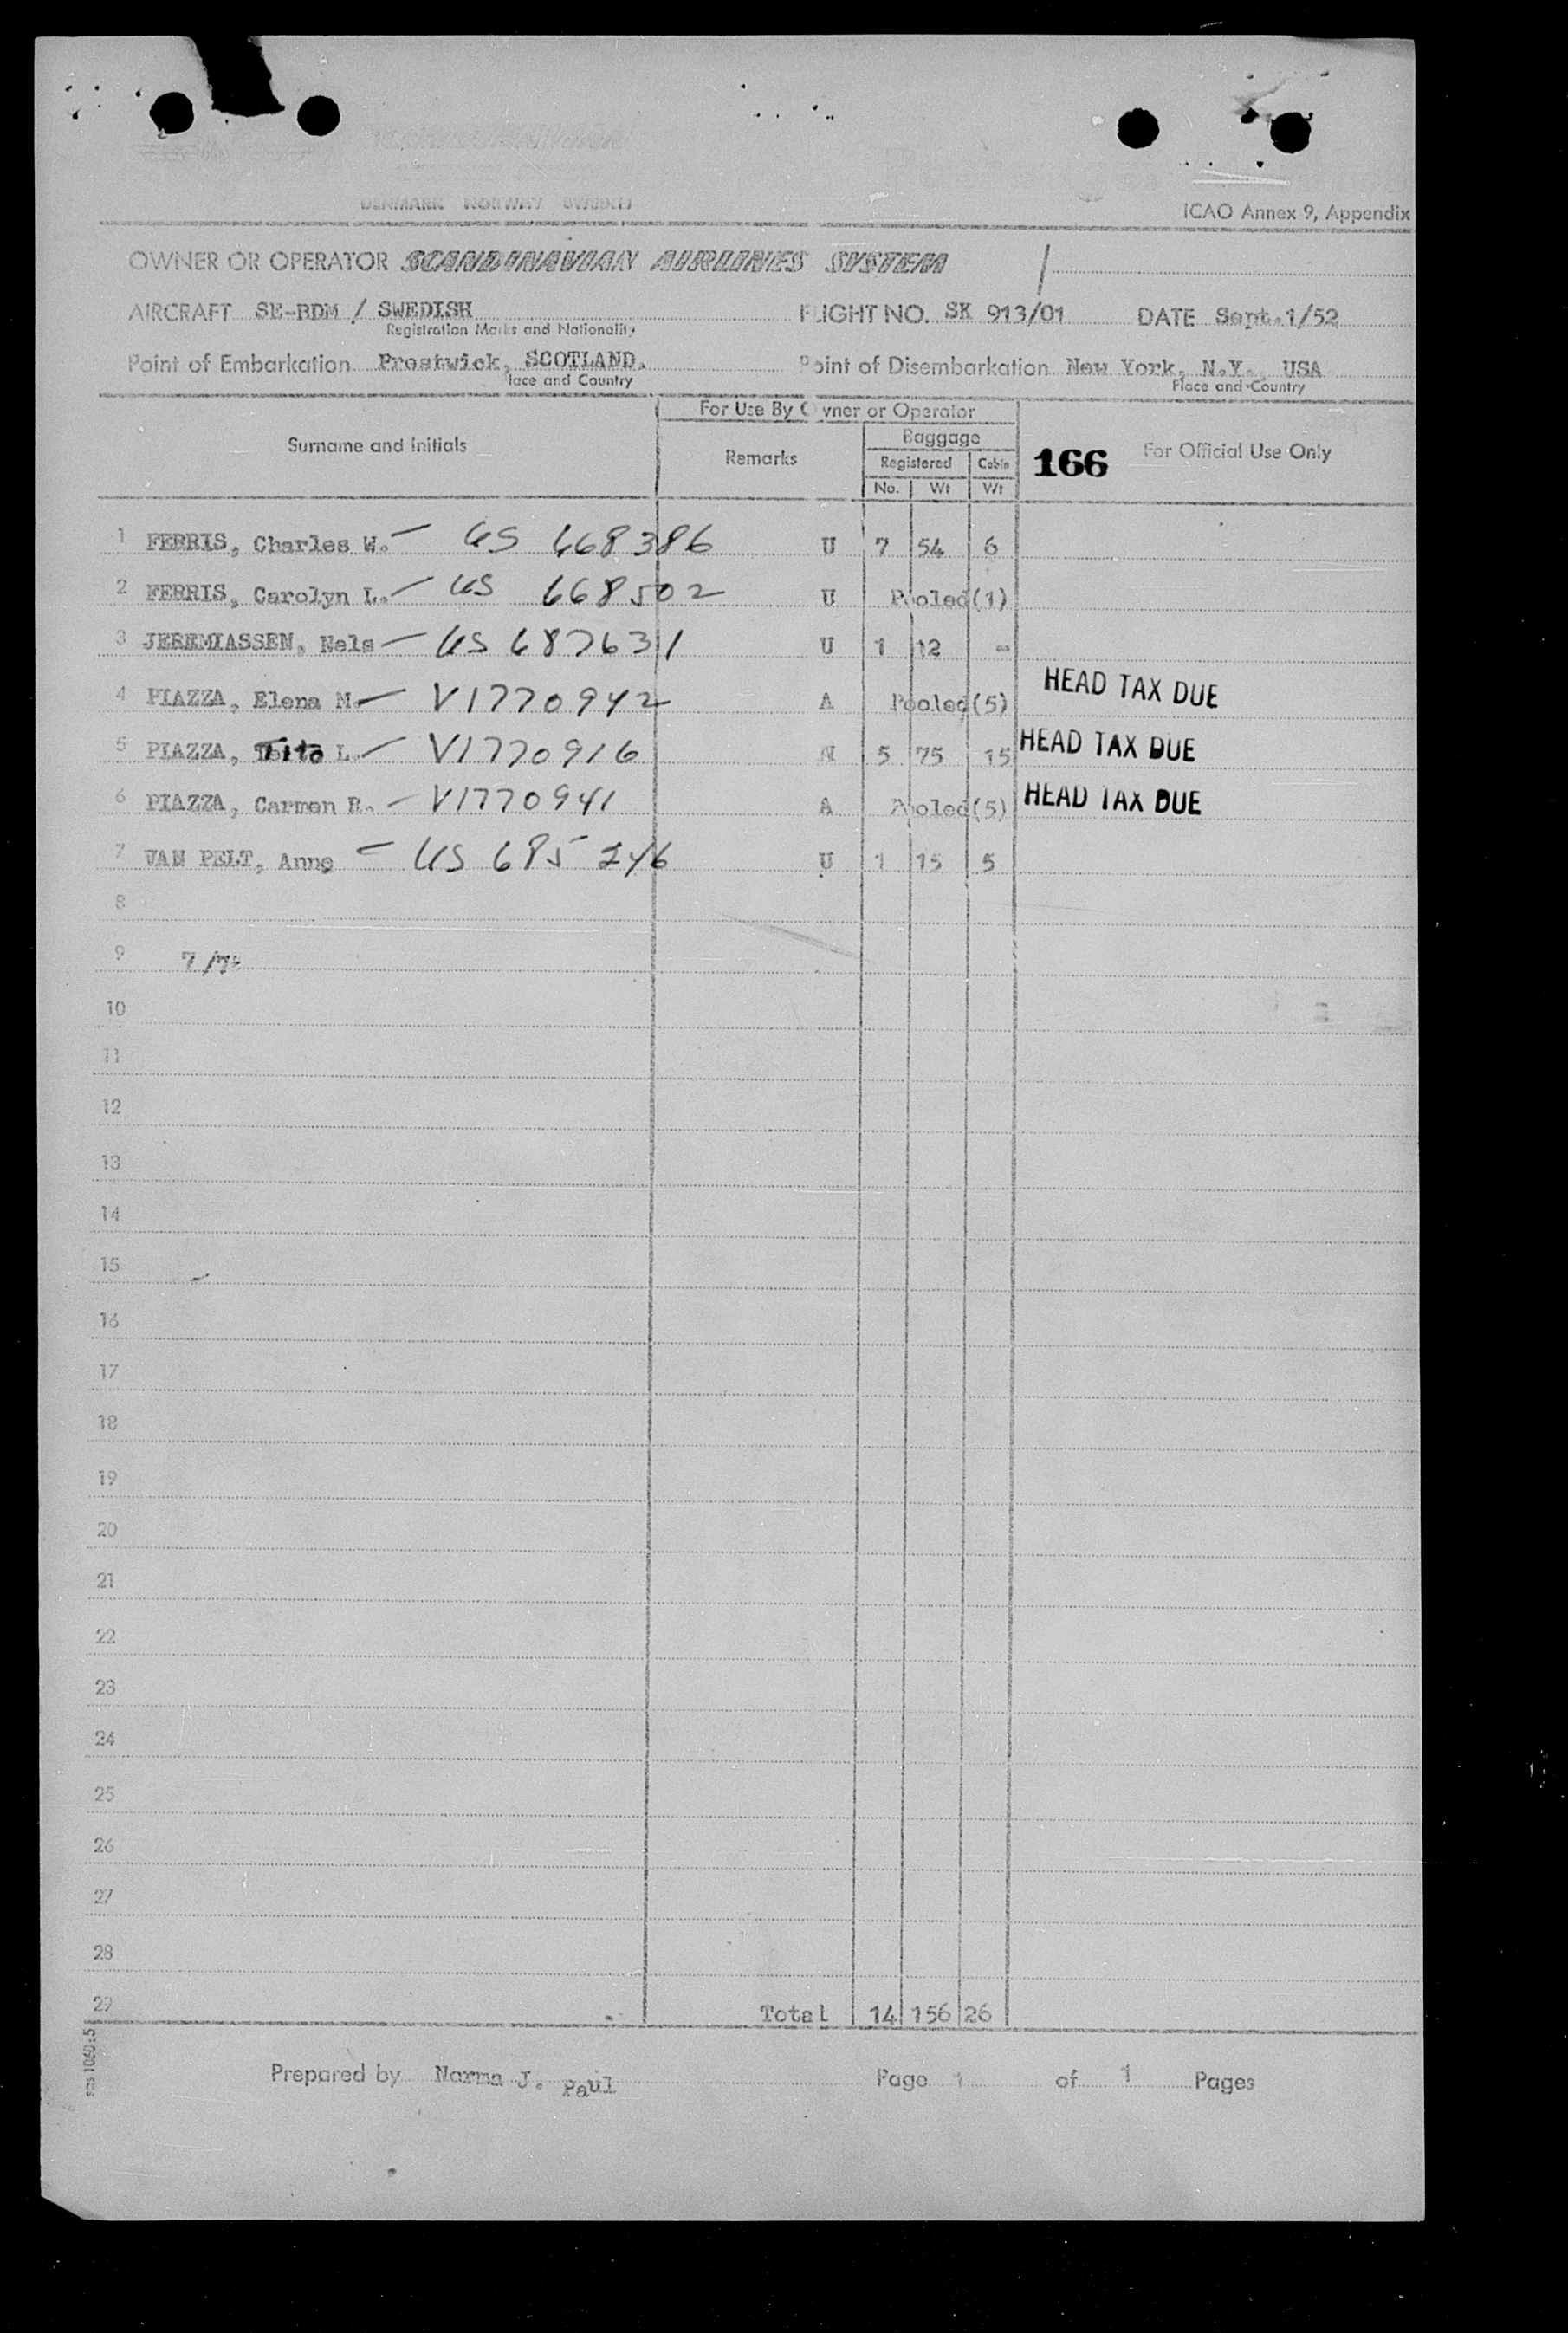 DENMARK NORWAY SWEDEN
ICAO Annex 9, Appendix
OWNER OR OPERATOR SCANDINAVIAN AIRLINES SYSTEM
AIRCRAFT SE-BDM / SWEDISH FLIGHT NO. SK 913/01 DATE Sept.1/52
Registration Marks and Nationality
Point of Embarkation Prestwick, SCOTLAND. Point of Disembarkation New York, N.Y., USA
lace and Country Place and Country
For Use By Owner or Operator
Surname and initials Remarks Baggage 166 For Official Use Only
Registered Cabin
No. Wt Wt
1 FERRIS, Charles W. — US 668386 U 7 54 6
2 FERRIS, Carolyn L. — US 668502 U Pooled(1)
3 JEREMIASSEN, Nels — US 687631 U 1 12 -
4 PIAZZA, Elena M. — V1770942 A Pooled(5) HEAD TAX DUE
5 PIAZZA, Tito L. — V1770916 N 5 75 15 HEAD TAX DUE
6 PIAZZA, Carmen R. — V1770941 A Pooled(5) HEAD TAX DUE
7 VAN PELT, Anne — US 685246 U 1 15 5
8
9
10
11
12
13
14
15
16
17
18
19
20
21
22
23
24
25
26
27
28
29 Total 14 156 26
sas 1060:5
Prepared by Norma J. Paul Page 1 of 1 Pages